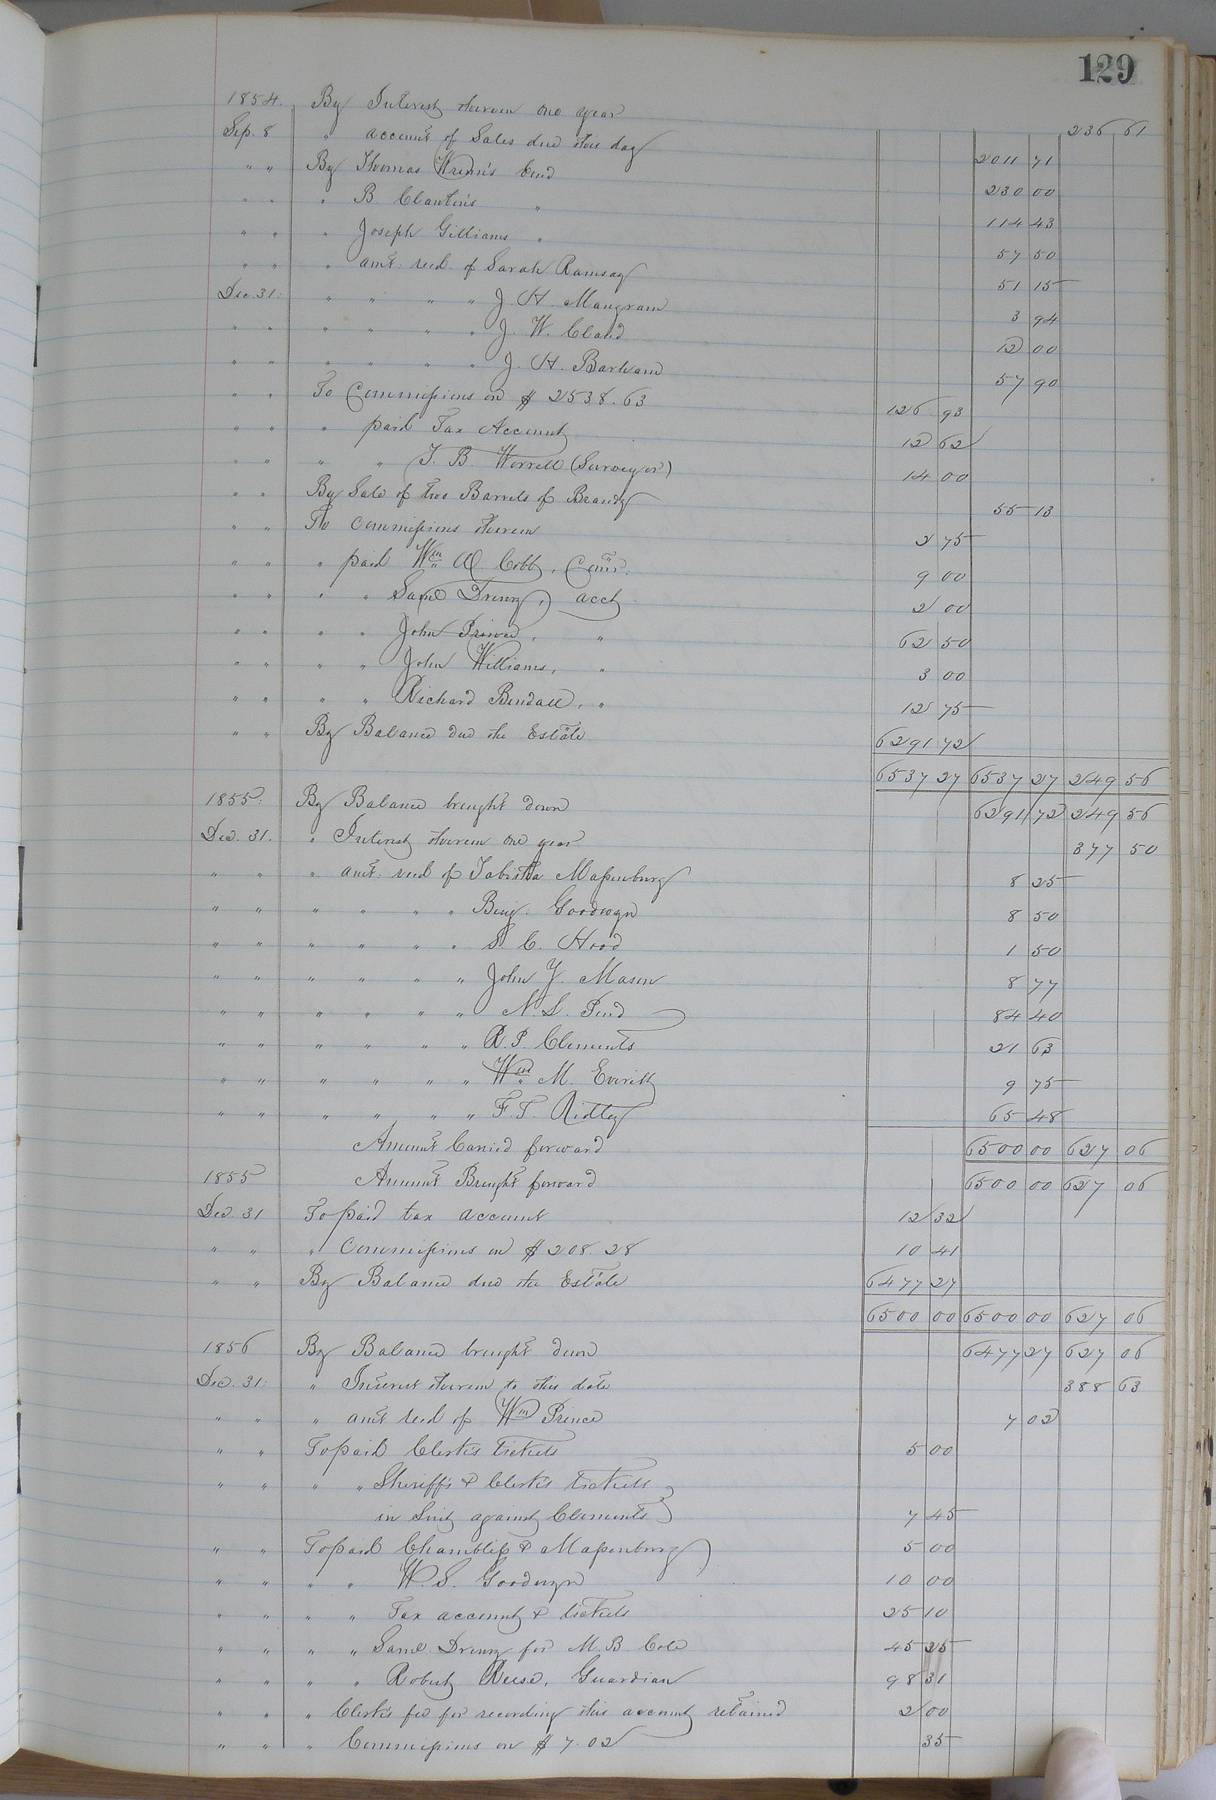 129
1854. By Interest thereon one year 236 61
Sep. 8 " account of Sales due this day 2011 71
" " By Thomas Wrenn's bond 230 00
" " " B. " 114 43
" " " Joseph Gilliams " 57 50
" " " amt. recd. of Sarah Ramsay 51 15
Dec. 31. " " " " J. H. Mangram 3 94
" " " " " " J. W. Claud 12 00
" " " " " " J. H. Barham 57 90
" " To Commissions on $ 2538.63 126 93
" " " paid Tax Account 12 62
" " " " T. B Worrell (Surveyor) 14 00
" " By Sale of two Barrels of Brandy 55 13
" " To commissions thereon 2 75
" " " paid Wm A Cobb, Comr. 9 00
" " " " Saml Drewry, acct 2 00
" " " " John , " 62 50
" " " " John Williams, " 3 00
" " " " Richard Bendall, " 12 75
" " By Balance due the Estate 6291 72
6537 27 6537 27 249 56
1855. By Balance brought down 6291 72 249 56
Dec. 31. " Interest thereon one year 377 50
" " " amt. recd of Tabitha Massenburg 8 25
" " " " " " Benj. Goodwyn 8 50
" " " " " " S. C. Hood 1 50
" " " " " " John Y. Mason 8 77
" " " " " " N. L. 84 40
" " " " " " R. P. Clements 21 63
" " " " " " Wm. M. Everitt 9 75
" " " " " " F. T. Ridley 65 48
Amount Carried forward 6500 00 627 06
1855 Amount Brought forward 6500 00 627 06
Dec. 31 To paid tax account 12 32
" " " commissions on $ 208.28 10 41
" " By Balance due the Estate 6477 27
6500 00 6500 00 627 06
1856 By Balance brought down 6477 27 627 06
Dec. 31. " Interest thereon to this date 388 63
" " " amt recd of Wm Prince 7 02
" " To paid Clerk's tickets 5 00
" " " " Sheriff's & Clerk's tickets
in Suit against Clements 7 45
" " To paid Chambliss & Massenburg 5 00
" " " " W. S. Goodwyn 10 00
" " " " Tax account & tickets 25 10
" " " " Saml. Drewry for M. B. Cole 45 25
" " " " Robert Reese, Guardian 98 31
" " " Clerk's fee for recording this account retained 2 00
" " " Commissions on $ 7.02 35